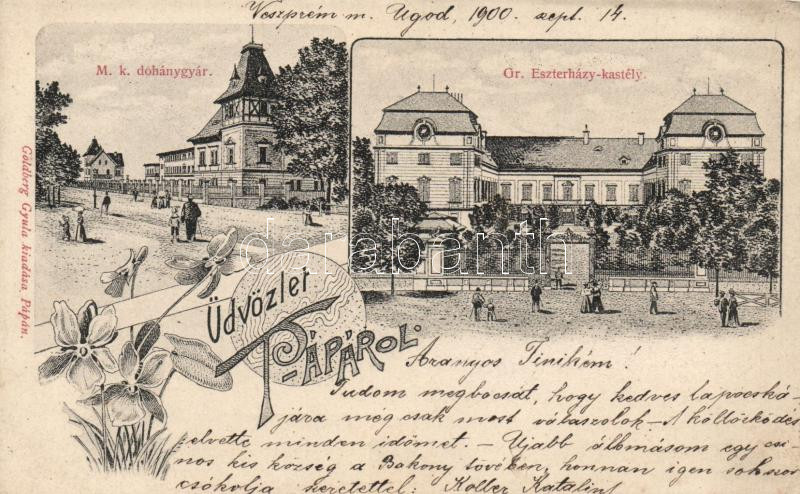 Veszprém m. Ugod, 1900. szept. 14.
M. k. dohánygyár.
Gr. Eszterházy-kastély.
Goldberg Gyula kiadása Pápán.
darabanth
Üdvözlet
PÁPÁROL
Aranyos Tinikém!
Tudom megbocsát, hogy kedves lapocská-
jára még csak most válaszolok – A költözködés
elvette minden időmet. – Ujabb állomásom egy csi-
nos kis község a Bakony tövében, honnan igen sokszor
csókolja szeretettel: Koller Katalin